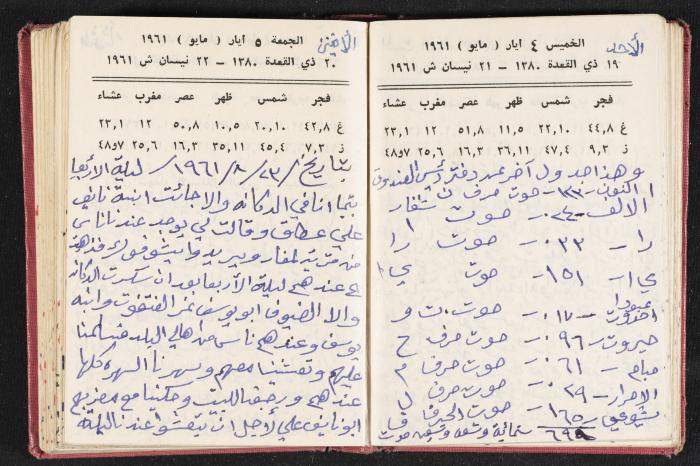 الأحد
الخميس ٤ أيار ( مايو ) ١٩٦١
١٩ ذي القعدة ١٣٨٠ – ٢١ نيسان ش ١٩٦١
فجر شمس ظهر عصر مغرب عشاء
غ ٤٤,٨ ٢٢,١٠ ١١,٥ ٥١,٨ ١٢ ٢٣,١
ز ٩,٣ ٤٧,٤ ٣٦,١١ ١٦,٣ ٢٥,٦ ٤٨و٧
وهذا جدول آخر عهد دفتر رئيس الصندوق
النون – ١٣٠ – صوت حرف ن شفار
الالف – ٢٤٠ – صوت ا
را – ٣٣٠ – صوت را
ي ا – ١٥١ – صوت ي ا
١٧٠ – صوت ت و
حيروت – ٩٦٠ – صوت حرف ح
مبام – ٦١٠ – صوت حرف م
الاحرار – ٢٩٠ – صوت حرف ل
شيوعي – ١٦٥ – صوت الحرف قا
٦٩٩ ستمائة وتسعة وتسعين صوت
الاثنين
الجمعة ٥ أيار ( مايو ) ١٩٦١
٢٠ ذي القعدة ١٣٨٠ – ٢٢ نيسان ش ١٩٦١
فجر شمس ظهر عصر مغرب عشاء
غ ٤٢,٨ ٢٠,١٠ ١٠,٥ ٥٠,٨ ١٢ ٢٣,١
ز ٧,٣ ٤٥,٤ ٣٥,١١ ١٦,٣ ٢٥,٦ ٤٨و٧
بتاريخ / ٢٣ / ٨ / ١٩٦١ / ليلة الأربعا
بتما انا في الدكانه والا جائت ابنة نايف
علي عطالله وقالت لي يوجد عندنا ناس
من ويريدوا يشوفوك
ع عندهم ليلة الأربعا بعد ان سكرت الدكانه
والا الضيوف ابو يوسف نمر وابنه
يوسف وعندهم ناس من اهالي البلد فسلمنا
عليهم وتعشينا معهم وسهرنا السهره كلها
عندهم ورجعنا للبيت وحكينا مع
ابو نايف علي لأجل ان يتعشوا عندنا ليلة